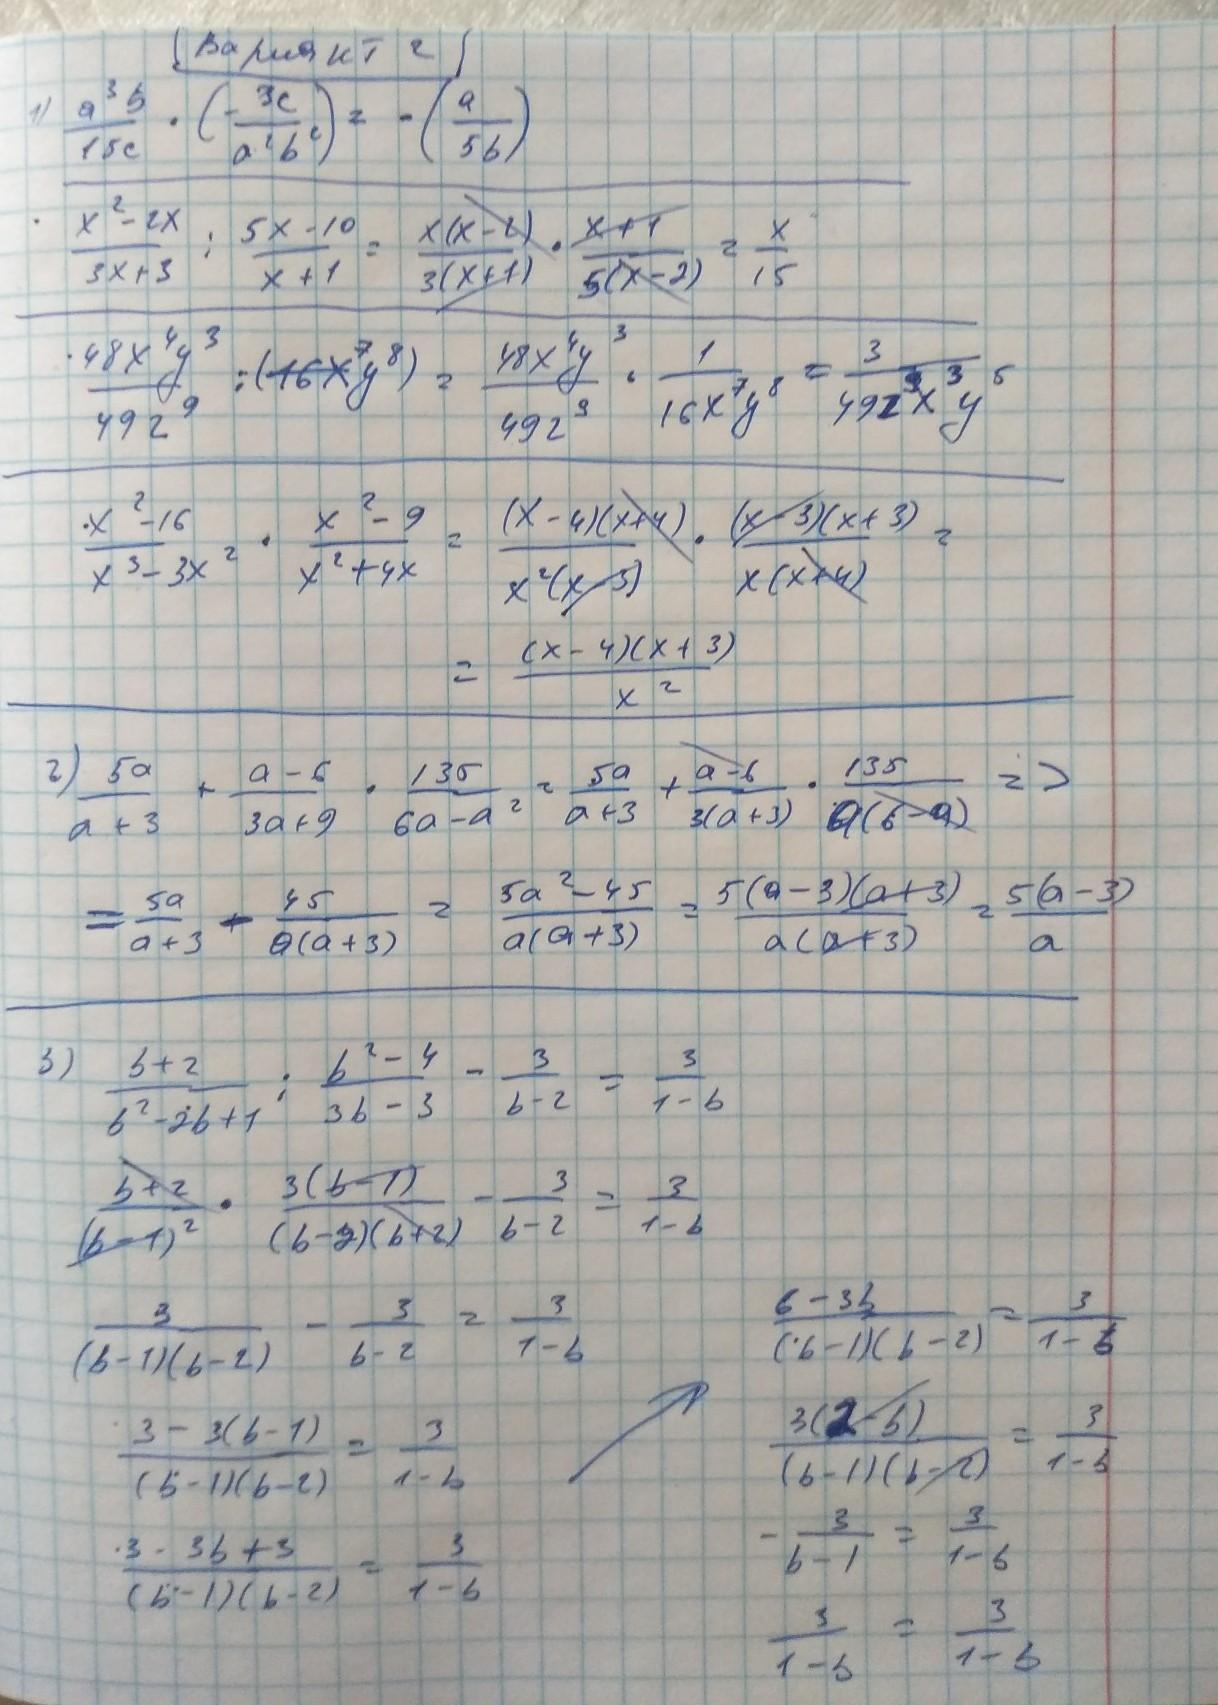 Вариант 2
1) a³b/15c · (-3c/a²b²) = -(a/5b)
· x²-2x/3x+3 : 5x-10/x+1 = x(x-2)/3(x+1) · x+1/5(x-2) = x/15
· 48x⁴y³/49z⁹ : (16x⁷y⁸) = 48x⁴y³/49z⁹ · 1/16x⁷y⁸ = 3/49z⁹x³y⁵
· x²-16/x³-3x² · x²-9/x²+4x = (x-4)(x+4)/x²(x-3) · (x-3)(x+3)/x(x+4) =
= (x-4)(x+3)/x²
2) 5a/a+3 + a-6/3a+9 · 135/6a-a² = 5a/a+3 + a-6/3(a+3) · 135/a(6-a) =>
= 5a/a+3 - 45/a(a+3) = 5a²-45/a(a+3) = 5(a-3)(a+3)/a(a+3) = 5(a-3)/a
3) b+2/b²-2b+1 : b²-4/3b-3 - 3/b-2 = 3/1-b
b+2/(b-1)² · 3(b-1)/(b-2)(b+2) - 3/b-2 = 3/1-b
3/(b-1)(b-2) - 3/b-2 = 3/1-b
3-3(b-1)/(b-1)(b-2) = 3/1-b
3-3b+3/(b-1)(b-2) = 3/1-b
6-3b/(b-1)(b-2) = 3/1-b
3(2-b)/(b-1)(b-2) = 3/1-b
- 3/b-1 = 3/1-b
3/1-b = 3/1-b